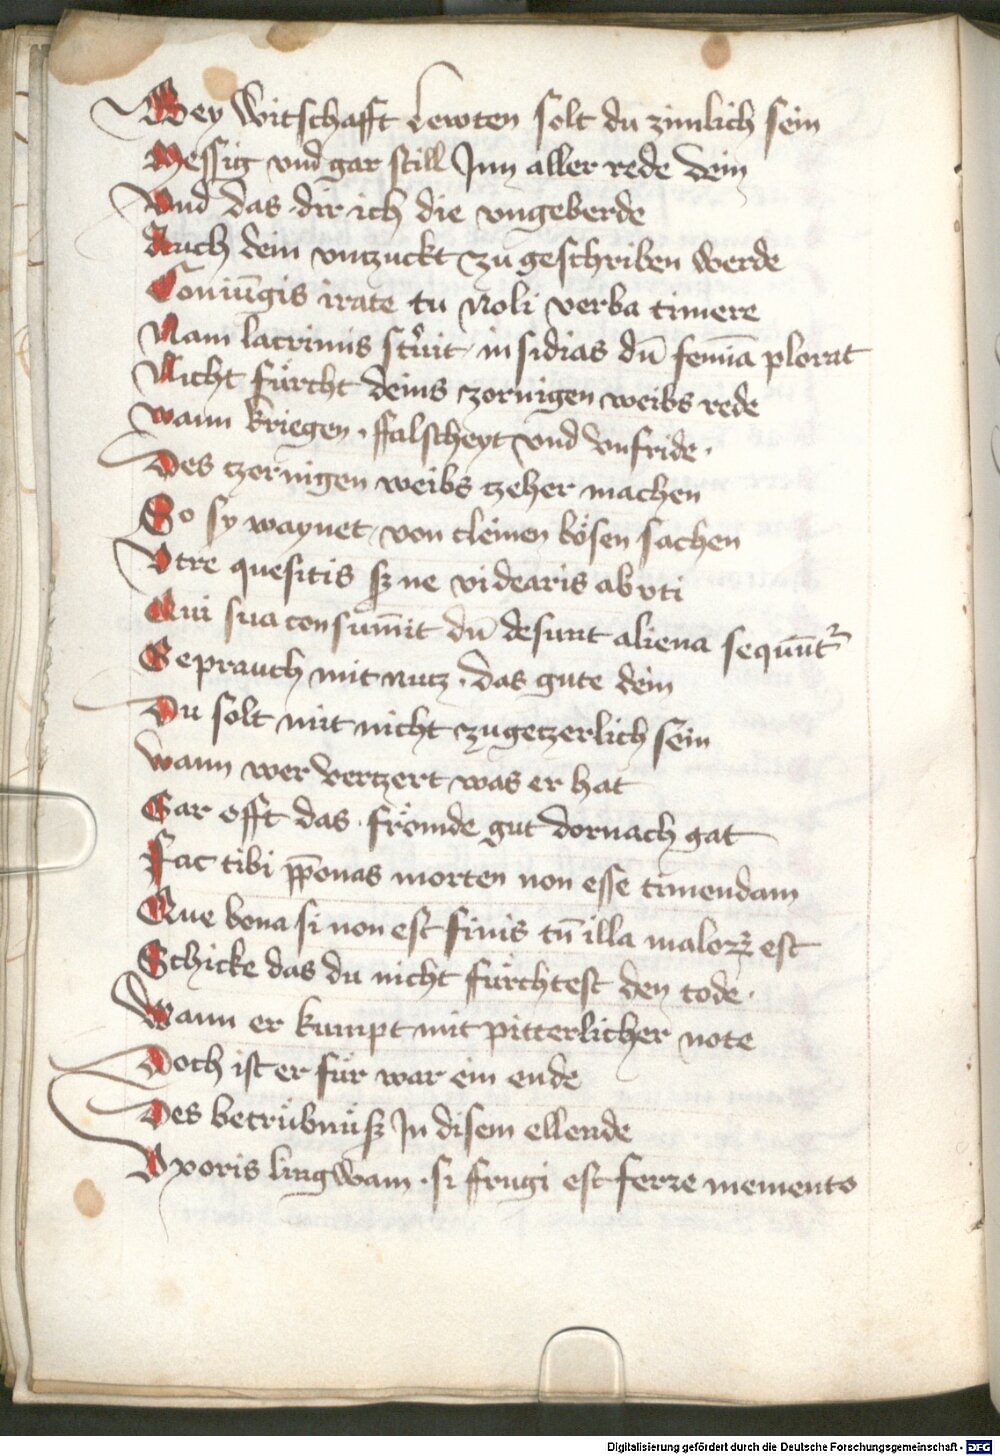 Bey Witschafft Lewten solt du zimlich sein
Messig vnd gar still Inn aller rede dein
Vnd das dir ich die vngeberde
Auch dein vntzuckt zu geschriben werde
Coniūgis irate tu Noli verba timere
Nam lacrimis struit insidias dū femīa plorat
Nicht fürcht deins zornigen weibs rede
wann kriegen · ffalscheyt vnd vnfride ·
Des tzornigen weibs tzeher machen
So sy waynet von cleinen bösen sachen
Vtre quesitis sz ne videaris ab vti
Qui sua consūmit dū desunt aliena sequūtr
Geprauch mit nutz · das gute dein
Du solt mit nicht zugetzerlich sein
wann wer vertzert was er hat
Gar offt das · frömde gut dornach gat
Fac tibi pponas mortem non esse timendam
Que bona si non est finis tn illa malorz est
Schicke das du nicht fürchtest den tode ·
Wann er kumpt mit pitterlicher note
Doch ist er für war ein ende
Des betrübnüsz In disem ellende
Vxoris lingwam · si ffrugi est ferre memento
Digitalisierung gefördert durch die Deutsche Forschungsgemeinschaft - DFG